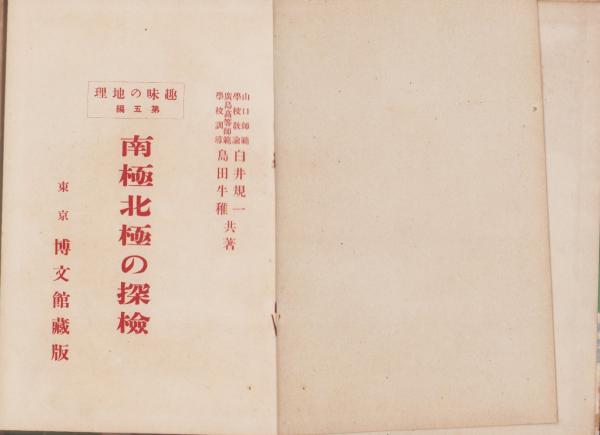 山口師範學校教諭 白井規一
廣島高等師範學校訓導 島田牛稚 共著
趣味の地理
第五編
南極北極の探檢
東京 博文館藏版